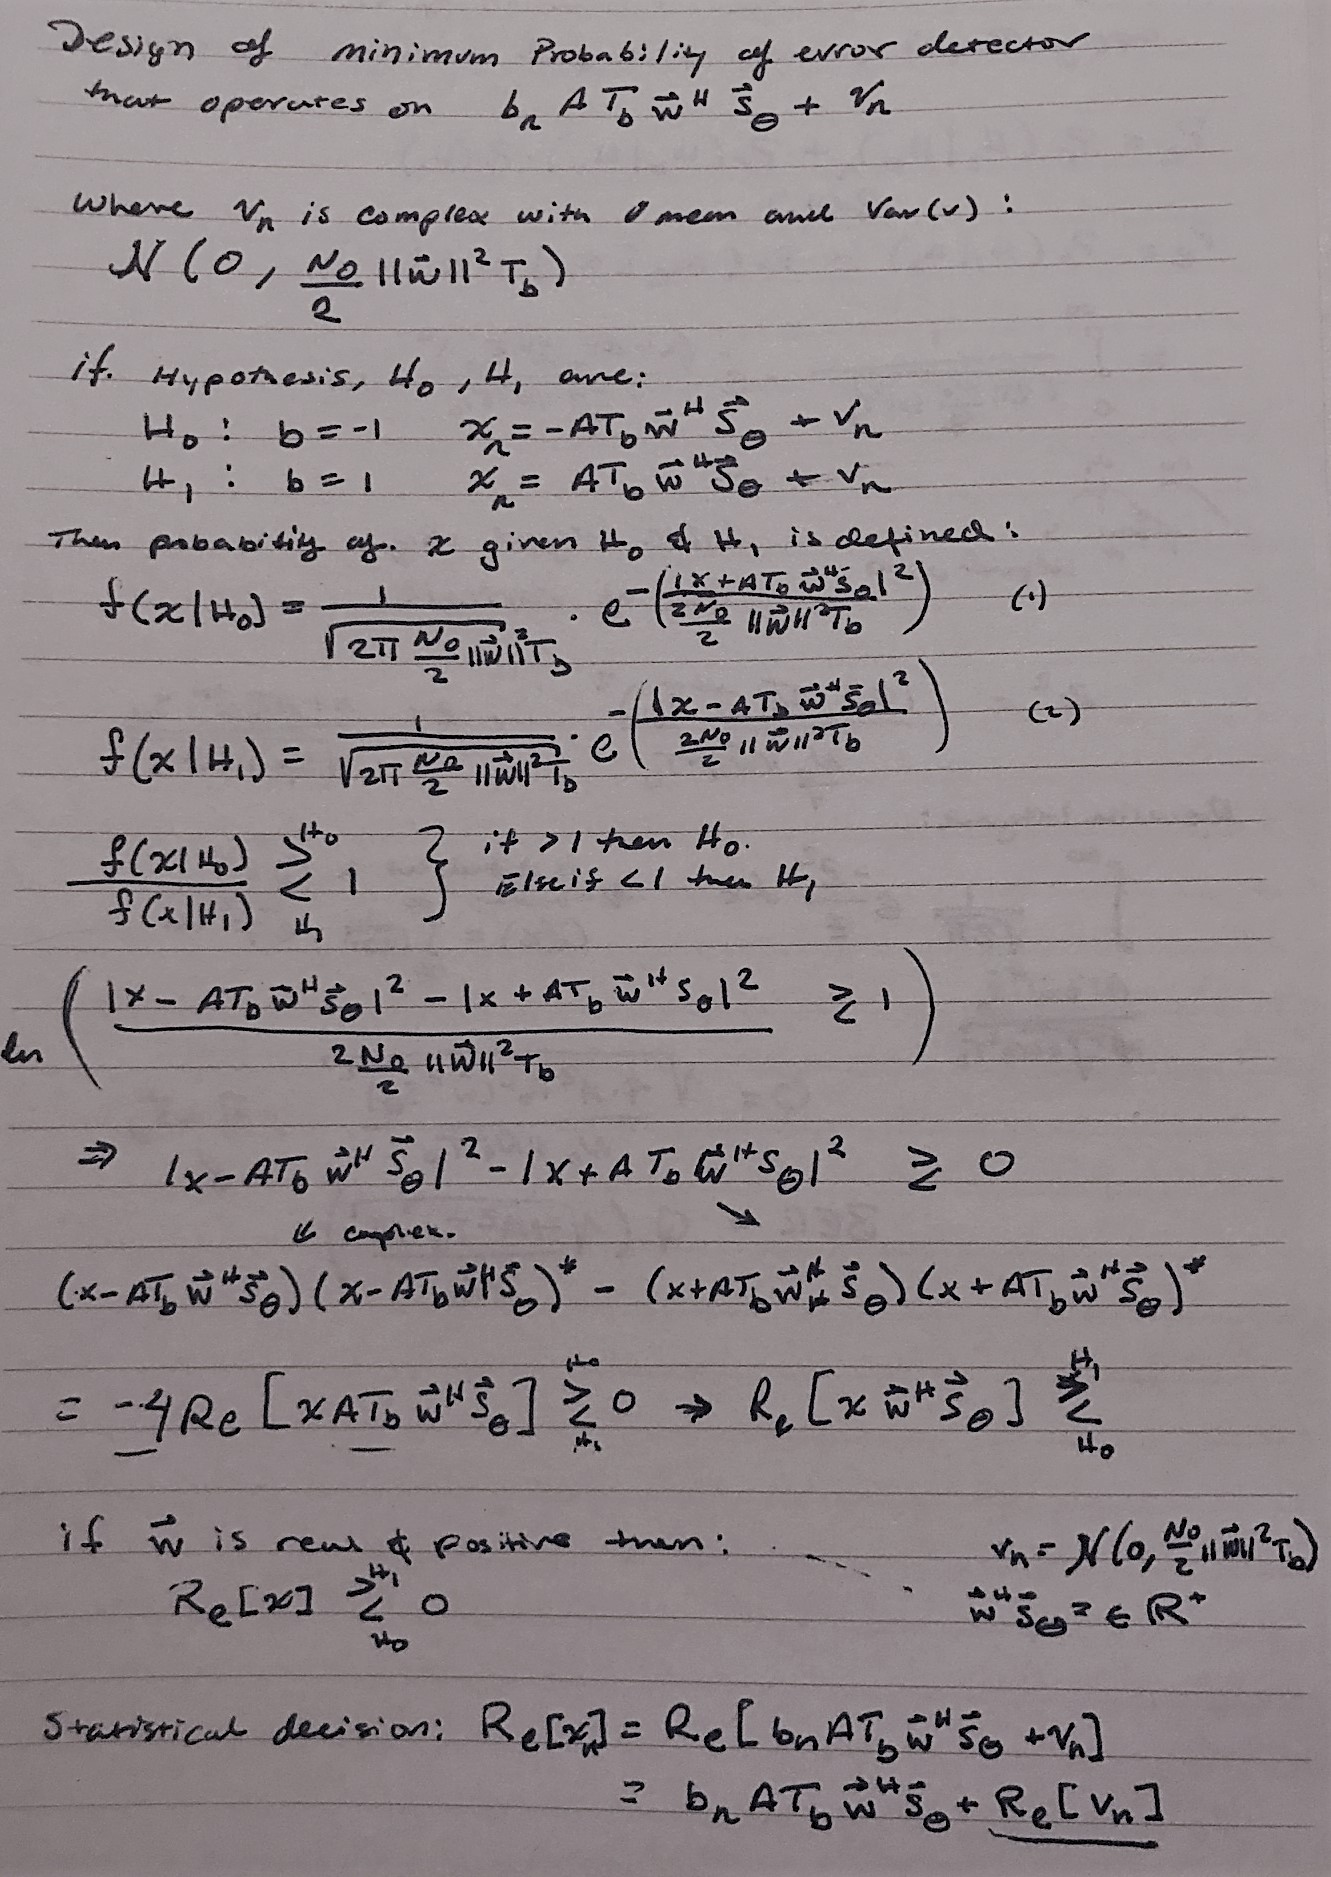 Design of minimum Probability of error detector
that operates on b_n A T_b w⃗^H s⃗_θ + v_n
where v_n is complex with 0 mean and Var(v) :
N (0, N0/2 ||w⃗||² T_b)
if. Hypothesis, H_0, H_1 are:
H_0 : b = -1 x_n = -AT_b w⃗^H s⃗_θ + v_n
H_1 : b = 1 x_n = AT_b w⃗^H s⃗_θ + v_n
Then probability of. x given H_0 & H_1 is defined :
f(x|H_0) = 1/√(2π N0/2 ||w⃗||² T_b) · e^-(|x + AT_b w⃗^H s⃗_θ|² / (2 N0/2 ||w⃗||² T_b)) (1)
f(x|H_1) = 1/√(2π N0/2 ||w⃗||² T_b) · e^-(|x - AT_b w⃗^H s⃗_θ|² / (2 N0/2 ||w⃗||² T_b)) (2)
f(x|H_0) / f(x|H_1) ≷^{H_0}_{H_1} 1 } if > 1 then H_0.
Else if < 1 then H_1
ln ( (|x - AT_b w⃗^H s⃗_θ|² - |x + AT_b w⃗^H s_θ|²) / (2 N0/2 ||w⃗||² T_b) ≷ 1 )
⇒ |x - AT_b w⃗^H s⃗_θ|² - |x + A T_b w⃗^H s_θ|² ≷ 0
↙ complex. ↘
(x - AT_b w⃗^H s⃗_θ) (x - AT_b w⃗^H s⃗_θ)* - (x + AT_b w⃗^H s⃗_θ) (x + AT_b w⃗^H s⃗_θ)*
= -4 Re [x AT_b w⃗^H s⃗_θ] ≷^{H_0}_{H_1} 0 → Re [x w⃗^H s⃗_θ] ≷^{H_1}_{H_0}
if w⃗ is real & positive then: v_n = N(0, N0/2 ||w⃗||² T_b)
Re[x] ≷^{H_1}_{H_0} 0 w⃗^H s⃗_θ = ∈ R⁺
Statistical decision: Re[x_n] = Re[b_n AT_b w⃗^H s⃗_θ + v_n]
= b_n AT_b w⃗^H s⃗_θ + Re[v_n]